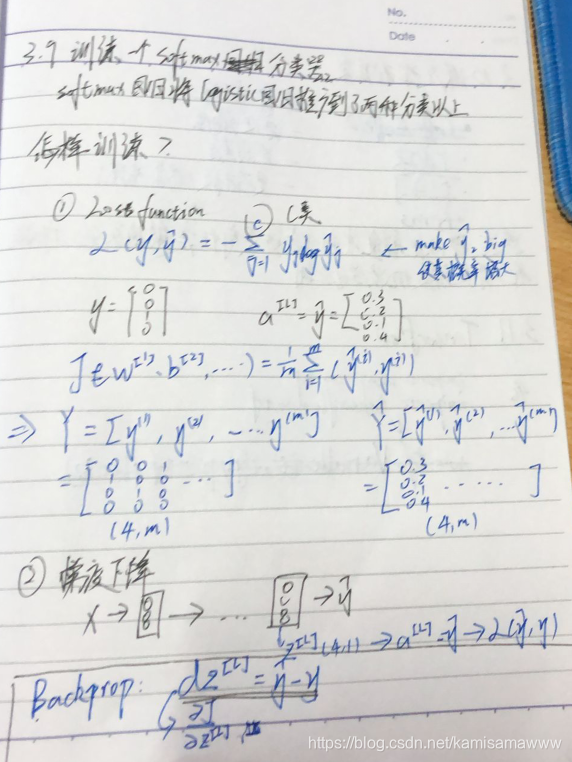 No.
Date
3.9 训练一个 softmax 分类器
softmax 回归将 logistic 回归推广到了两种分类以上
怎样训练?
① Loss function C类
L(y,ŷ) = -∑_{j=1}^{C} y_j log ŷ_j ← make ŷ₂ big
使其概率增大
y = [0 1 0] a^[L] = ŷ = [0.3 0.2 0.1 0.4]
J(w^[1], b^[2], ....) = 1/m ∑_{i=1}^{m} (ŷ^(i), y^(i))
⇒ Y = [y^(1), y^(2), ... y^(m)] Ŷ = [ŷ^(1), ŷ^(2), ... ŷ^(m)]
= [0 0 1 / 1 0 0 / 0 1 0 / 0 0 0 ...] = [0.3 0.2 0.1 0.4 ......]
(4,m) (4,m)
② 梯度下降
X → [] → ... [] → ŷ
z^[L] (4,1) → a^[L] = ŷ → L(ŷ,y)
Backprop: dz^[L] = ŷ - y
∂J
∂z^[L]
https://blog.csdn.net/kamisamawww